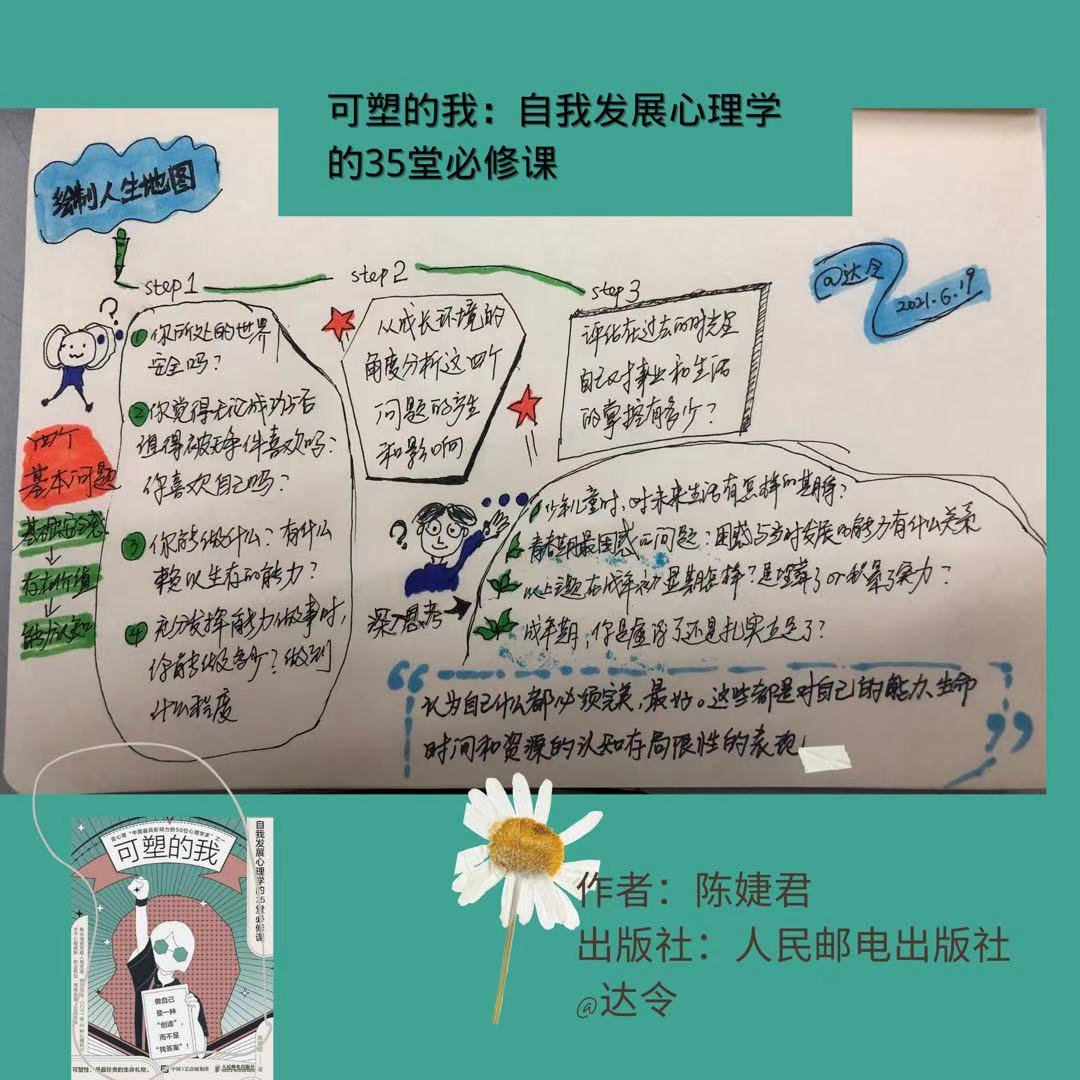 可塑的我：自我发展心理学
的35堂必修课
绘制人生地图
@达令
2021.6.19
step1
step2
step3
①你所处的世界
安全吗？
②你觉得无论成功与否
值得被无条件喜欢吗？
你喜欢自己吗？
③你能做什么？有什么
赖以生存的能力？
④充分发挥能力做事时，
你能做多少？做到
什么程度
四个
基本问题
基础安全感
存在价值
能力认知
从成长环境的
角度分析这四个
问题的产生
和影响
评估在过去的时光里
自己对事业和生活
的掌握有多少？
深入思考
少年儿童时，对未来生活有怎样的期待？
青春期最困惑的问题？困惑与当时发展的能力有什么关系
以上主题在成年初显期怎样？是埋葬了or积累了实力？
成年期，你是虚浮了还是扎实立足了？
“认为自己什么都必须完美，最好。这些都是对自己的能力、生命
时间和资源的认知存局限性的表现”
可塑的我
自我发展心理学的35堂必修课
做自己
是一种
“创造”，
而不是
“找答案”！
可塑性，是最珍贵的生命礼物。
中国工信出版集团
人民邮电出版社
作者：陈婕君
出版社：人民邮电出版社
@达令